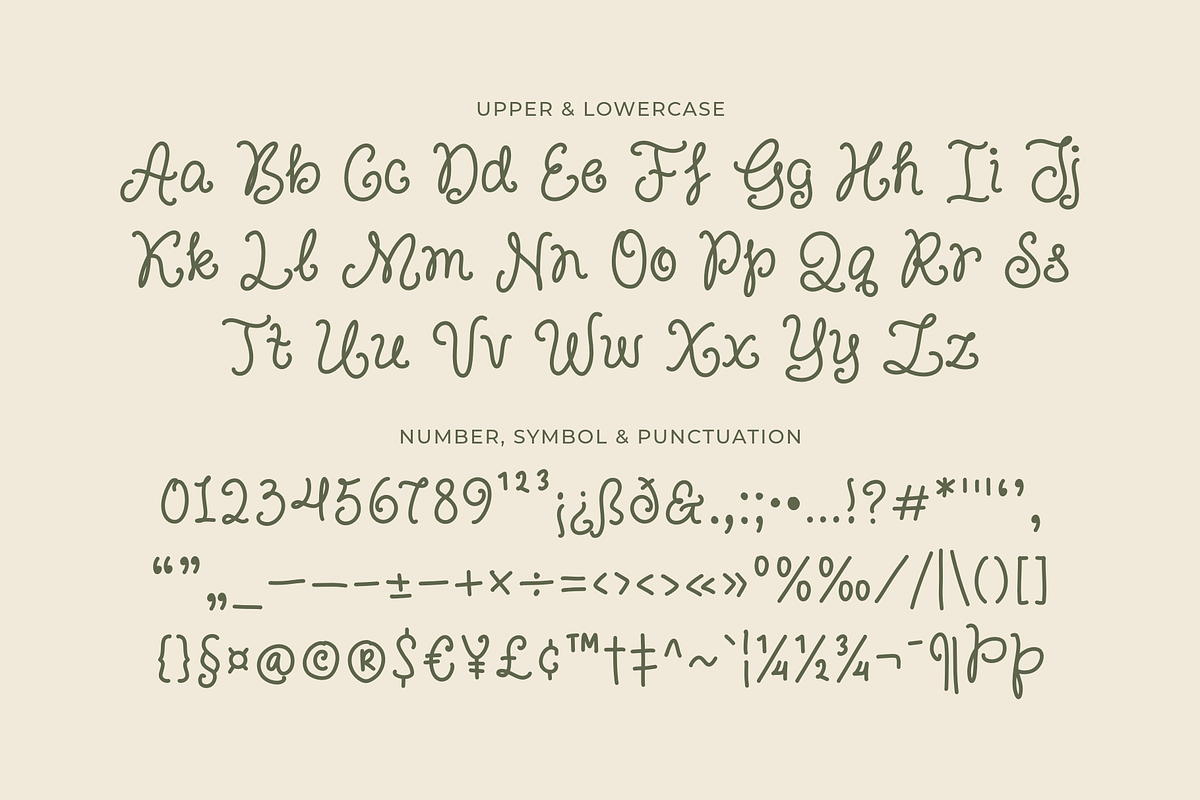 UPPER & LOWERCASE
Aa Bb Cc Dd Ee Ff Gg Hh Ii Jj
Kk Ll Mm Nn Oo Pp Qq Rr Ss
Tt Uu Vv Ww Xx Yy Zz
NUMBER, SYMBOL & PUNCTUATION
0123456789¹²³¡¿ßð&.,:;·•…!?#*'"'‘’‚
“”„_—–-±−+×÷=<>‹›«»º%‰⁄/|\()[]
{}§¤@©®$€¥£¢™†‡^~`¦¼½¾¬¯¶Þþ